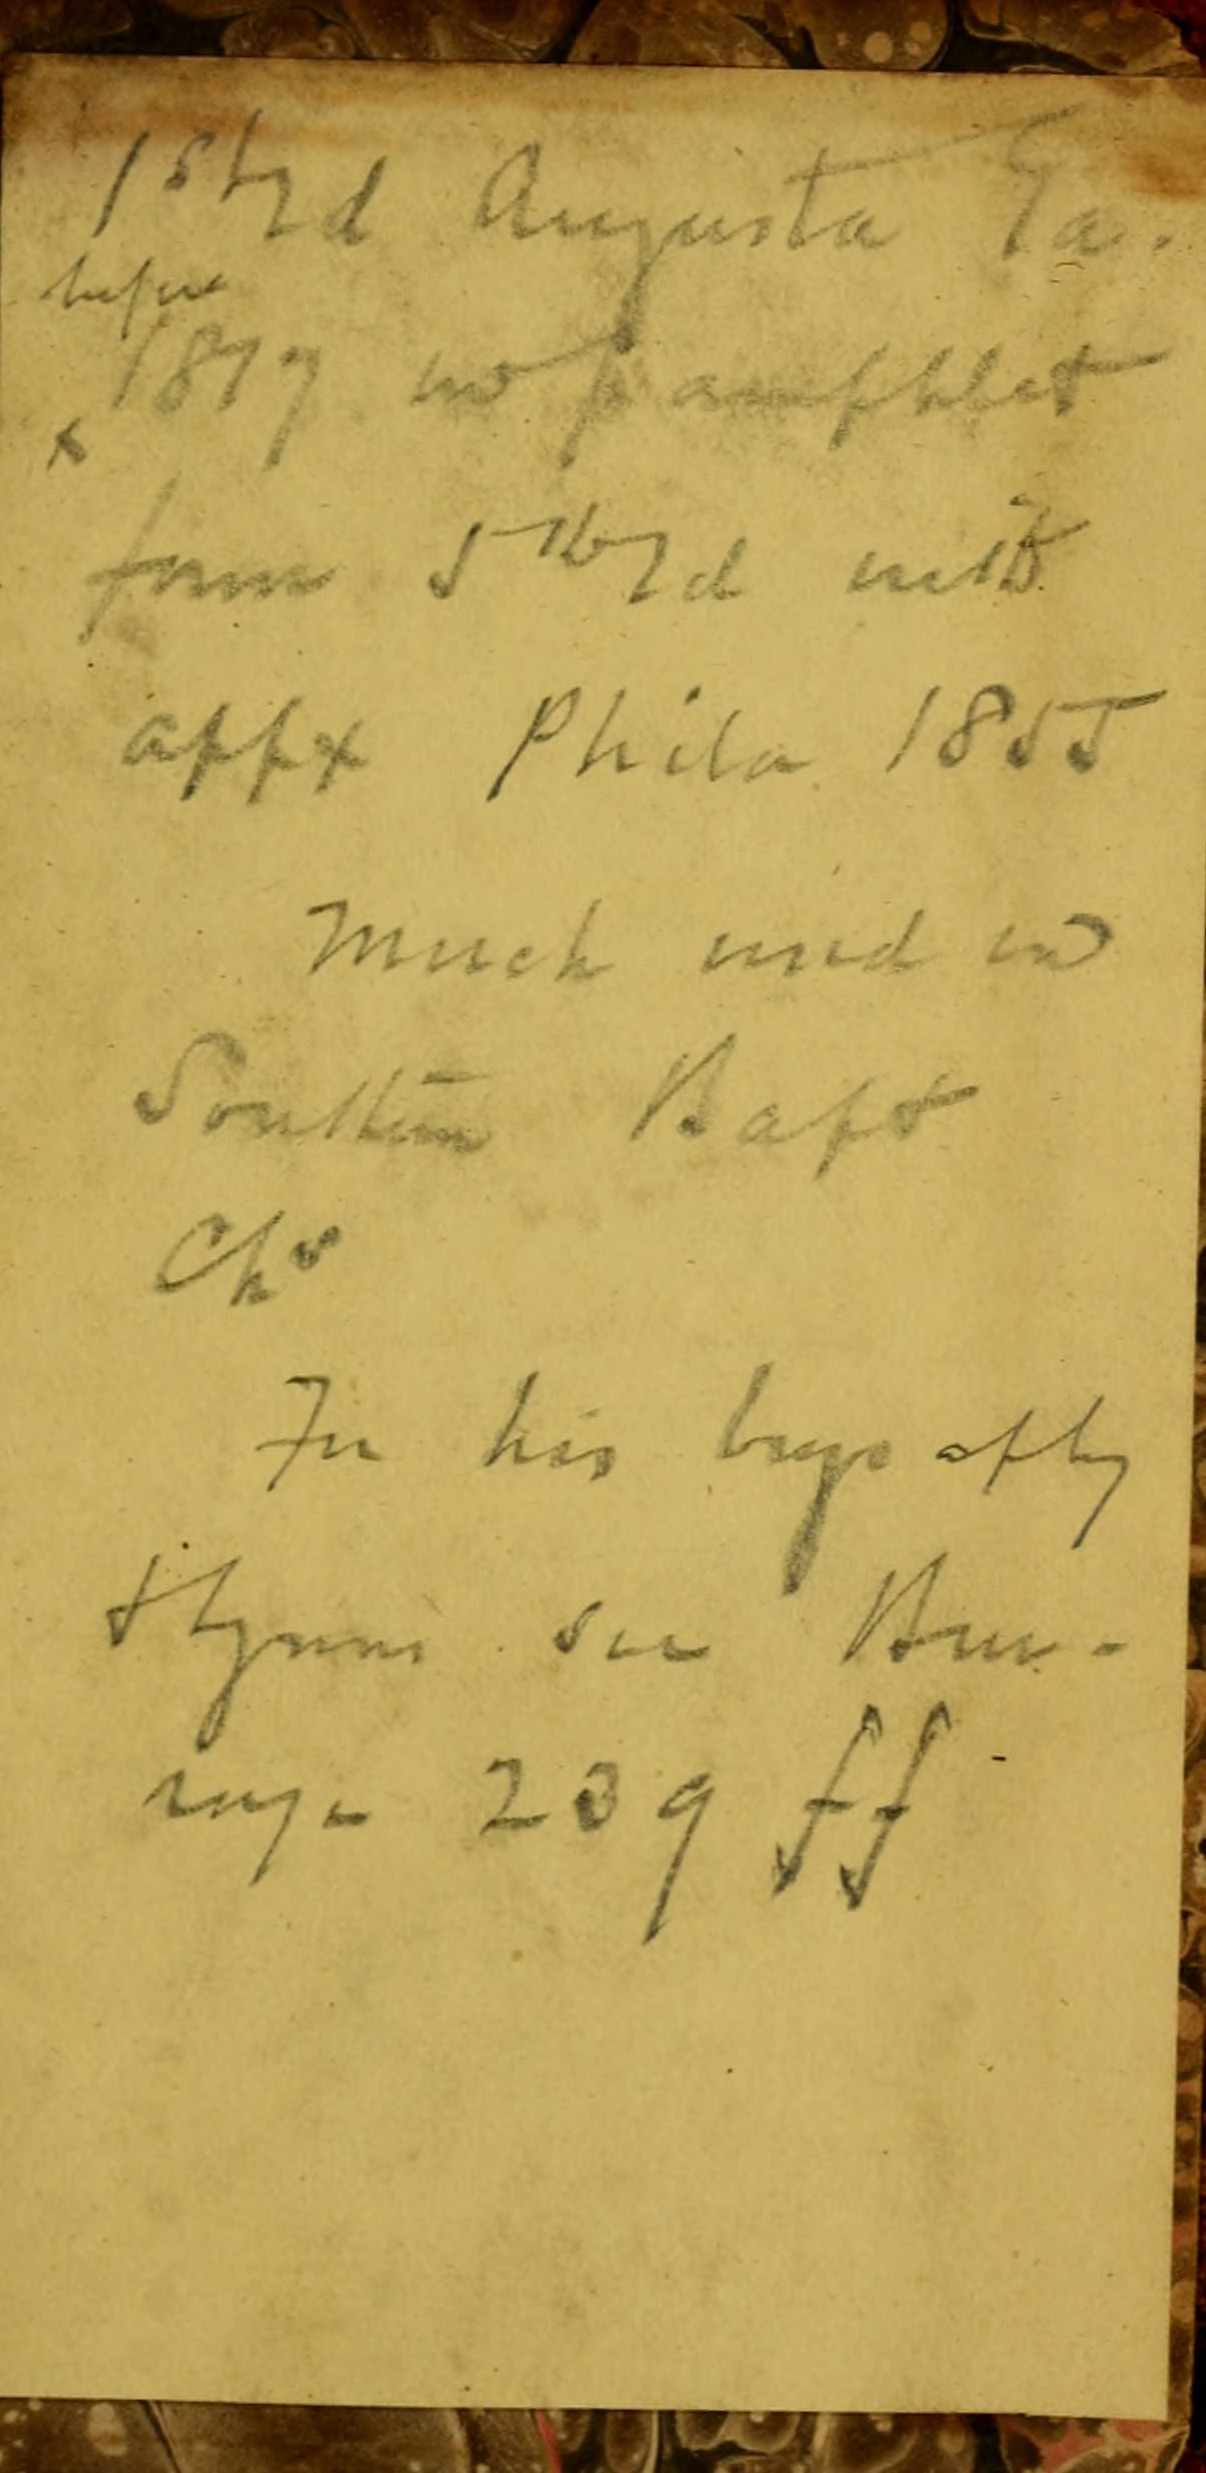 1st Ed Augusta Ga.
before
x 1817 in pamphlet
form 5th Ed with
appx Phila 1855
Much used in
Southern Bapt
Chs
For his biography
& Hymns see Bur-
rage 239 ff